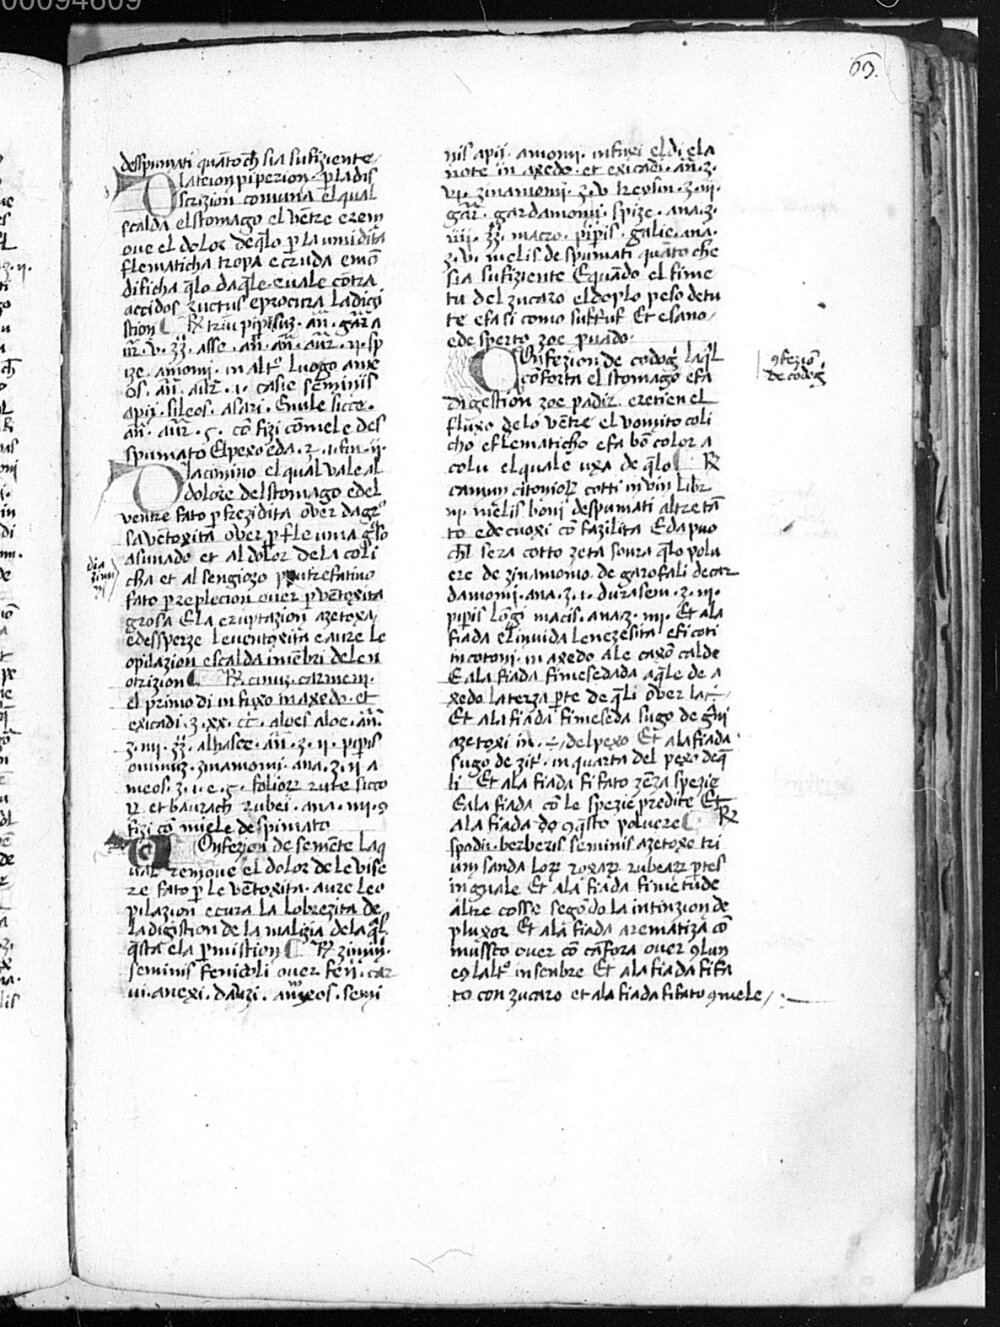 00094609
63.
desspumati quāto ch̄ sia sufiziente
Dlateion piperion p̄ la dis
scrizion comuna el qual
scalda el stomago el vētre e rem
oue el dolor de q̄lo p̄ la umidita
flematicha tropa e cruda e mō
dificha q̄lo da q̄le e uale cōtra
accidos ructus e procura la digi
stion
ize. amomi. in alt° luogo anx
apii. sileos. asari. Enule sicce.
an̄. aur̄. 5. cōfizi cō miele des
spumato El pexo e da. 2. ifin. ii.
Diacimino el qual vale al
dolore del stomago e del
ventre fato p̄ frezidita over da gr°
sa vētoxita over p̄ fleuma g°so
asunado et al dolor de la coli
cha et al sengiozo p̄ putrefatino
fato p̄ replecion over p̄ vētoxita
grosa E la eruptazion azetoxa
e dessperze le ventoxita e aure le
opilazion e scalda i mēbri de le n
otrizion ℞ cimiz. carmeni.
el primo di in fuxo in axedo. et
exicadi. 3. xx. cc. aloes aloe. an̄.
ominiz. zinamomi. ana. 3. ii a
meos. 3. i. e. 5. folior̄ rute sicco
r̄ et baurach rubei. ana. iiii. 9
fizi cō miele despimato
Confezion de semēte la q
ual remoue el dolor de le vise
re fato p̄ le vētoxita. aure le o
pilazion e cura la lobrezita de
la digistion de la malizia de la q̄l
q̄sta e la p̄mistion ℞ zimiī.
seminis fenicoli over fen̄. car
vi. anexi. dauzi. am̄eos. semi
dia
zimi
ni
nis apii. amomi. infusi el di. e la
note in axedo. et exicadi. an̄. 3.
vi. zinamomi. 3. v
gār. gardamomi. spize. ana. 3.
iiii. macro. pipis. galie. ana.
3. v. melis despumati quāto che
sia sufiziente E quādo el fi me
tu del zucaro el doplo peso de tu
te e fa si como suffuf Et e sano
e desperto zoe puado.
Confezion de codoḡ. la q̄l
cōforta el stomago e fa
digestion zoe padir. e retien el
fluxo de lo vētre el vomito coli
cho e flematicho e fa bō color a
colu el quale uxa de q̄lo ℞
carnium citonior̄ cotti in vin libr̄
iii. melis boni despumati altretā
to e de cuoxi cō fazilita E da puo
ch̄l sera cotto zeta soura q̄lo polu
ere de zinamomo. de garofali de car
damomi. ana. 3. i. durasem. 3. iii.
pip̄is lōgi macis. ana. 3. iiii. Et a la
fiada el in uida le nezesita e fi coti
in cotoni. in axedo a le caxō calde
E a la fiada fi mesedada a q̄le de a
xedo la terza p̄te de q̄li over la
Et a la fiada fi meseda sugo de
azetoxi in. del pexo Et a la fiada
sugo de zit̄. in quarta del pexo de q̄
li Et a la fiada fi fato zēza spezie
E a la fiada cō le spezie predite Et
a la fiada de 9q̄sto poluere ℞
spodii. berberis seminis azetoxe tri
um sandalor̄ roxar̄ rubear̄ ptes
inguale Et a la fiada fi metude
altre cosse segōdo la intinzion de
pluxor Et a la fiada arematiza cō
mussco over cō cāfora over 9 lun
e 9 lalt° insenbre Et a la fiada fi fa
to con zucaro et a la fiada fi fato 9 miele
9fezio
de codoḡ